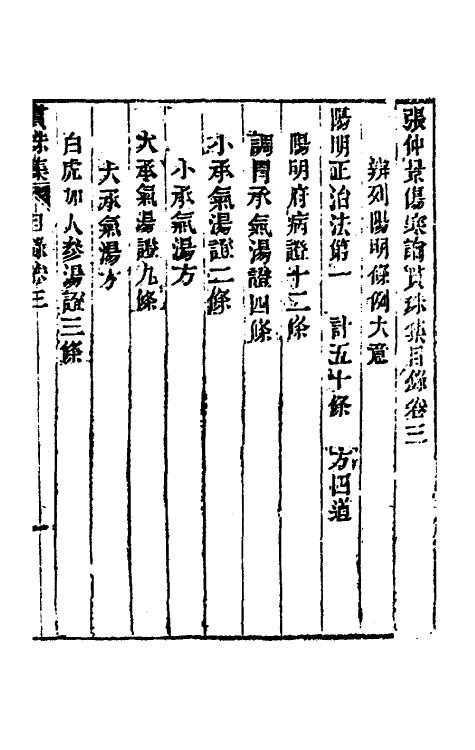 張仲景傷寒論貫珠集目錄卷三
辨列陽明條例大意
陽明正治法第一 計五十條 方四道
陽明府病證十二條
調胃承氣湯證四條
小承氣湯證二條
小承氣湯方
大承氣湯證九條
大承氣湯方
白虎加人參湯證三條
貫珠集 目錄卷三 一